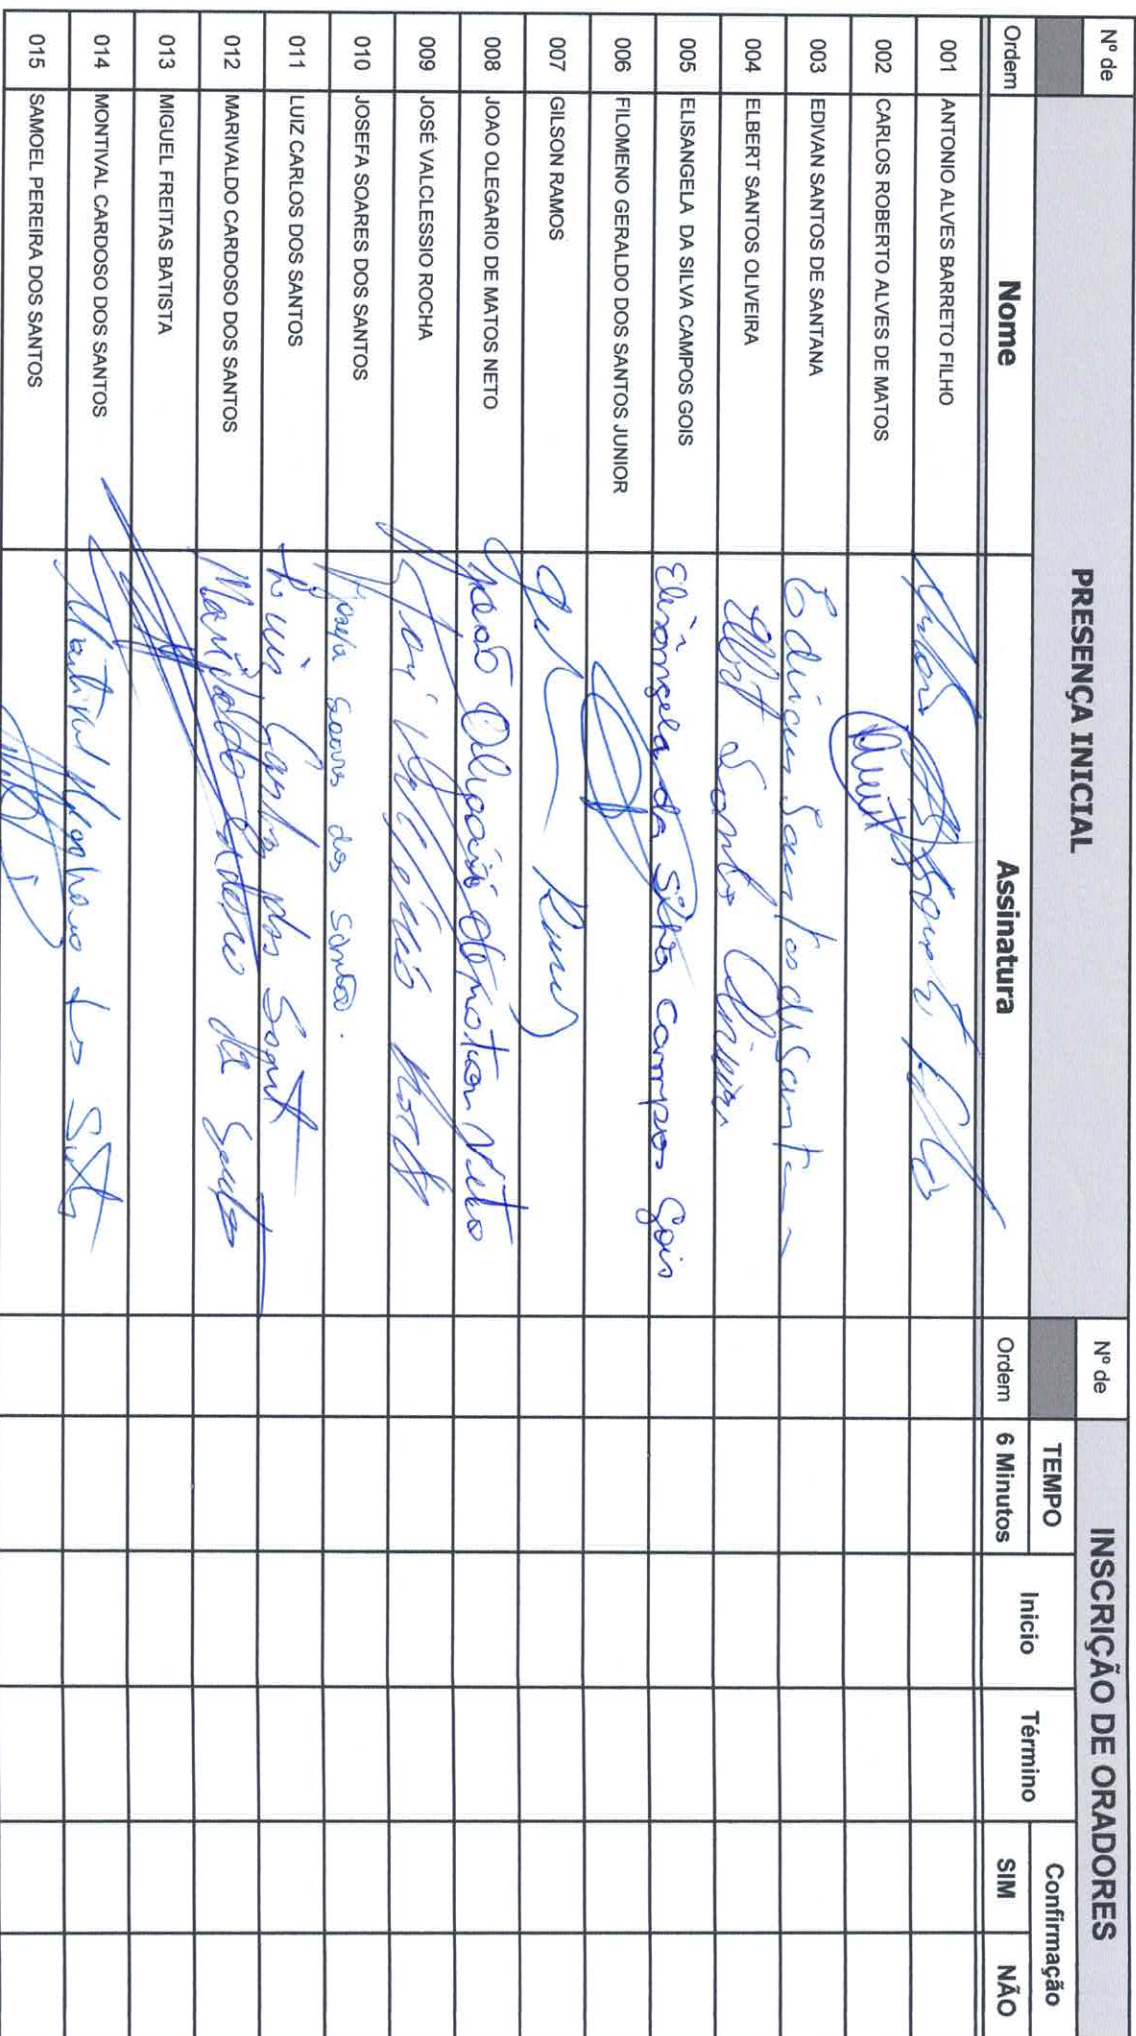 Nº de
PRESENÇA INICIAL
Nº de
INSCRIÇÃO DE ORADORES
TEMPO
Confirmação
Ordem
Nome
Assinatura
Ordem
6 Minutos
Inicio
Término
SIM
NÃO
001 ANTONIO ALVES BARRETO FILHO
002 CARLOS ROBERTO ALVES DE MATOS
003 EDIVAN SANTOS DE SANTANA Edivan Santos de Santana
004 ELBERT SANTOS OLIVEIRA Elbert Santos Oliveira
005 ELISANGELA DA SILVA CAMPOS GOIS Elisângela da Silva Campos Gois
006 FILOMENO GERALDO DOS SANTOS JUNIOR
007 GILSON RAMOS
008 JOAO OLEGARIO DE MATOS NETO João Olegario de Matos Neto
009 JOSÉ VALCLESSIO ROCHA
010 JOSEFA SOARES DOS SANTOS Josefa Soares dos Santos.
011 LUIZ CARLOS DOS SANTOS Luiz Carlos dos Santos
012 MARIVALDO CARDOSO DOS SANTOS Marivaldo Cardoso
013 MIGUEL FREITAS BATISTA
014 MONTIVAL CARDOSO DOS SANTOS
015 SAMOEL PEREIRA DOS SANTOS